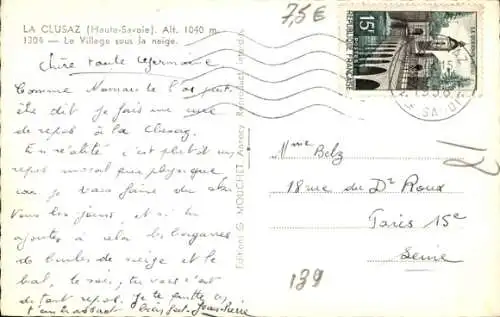 LA CLUSAZ (Haute-Savoie). Alt. 1040 m.
1304 - Le Village sous la neige.
7,5 €
15F
REPUBLIQUE FRANÇAISE
POSTES
SAVOIE
Chère tante Germaine
Comme Maman te l'as peut-
être dit je fais une cure
de repos à la Clusaz
En réalité c'est plutôt un
repos moral que physique
car je vais faire du ski
tous les jours, et si tu
ajoutes à cela les bagarres
de boules de neige et le
bal, le soir, tu vois c'est
du tout repos. Je te quitte
t'embrassant bien fort Jean-Pierre
Editions G. MOUCHET - Annecy Reproduction interdite
Mme Belz
18 rue du Dr Roux
Paris 15e
Seine
139